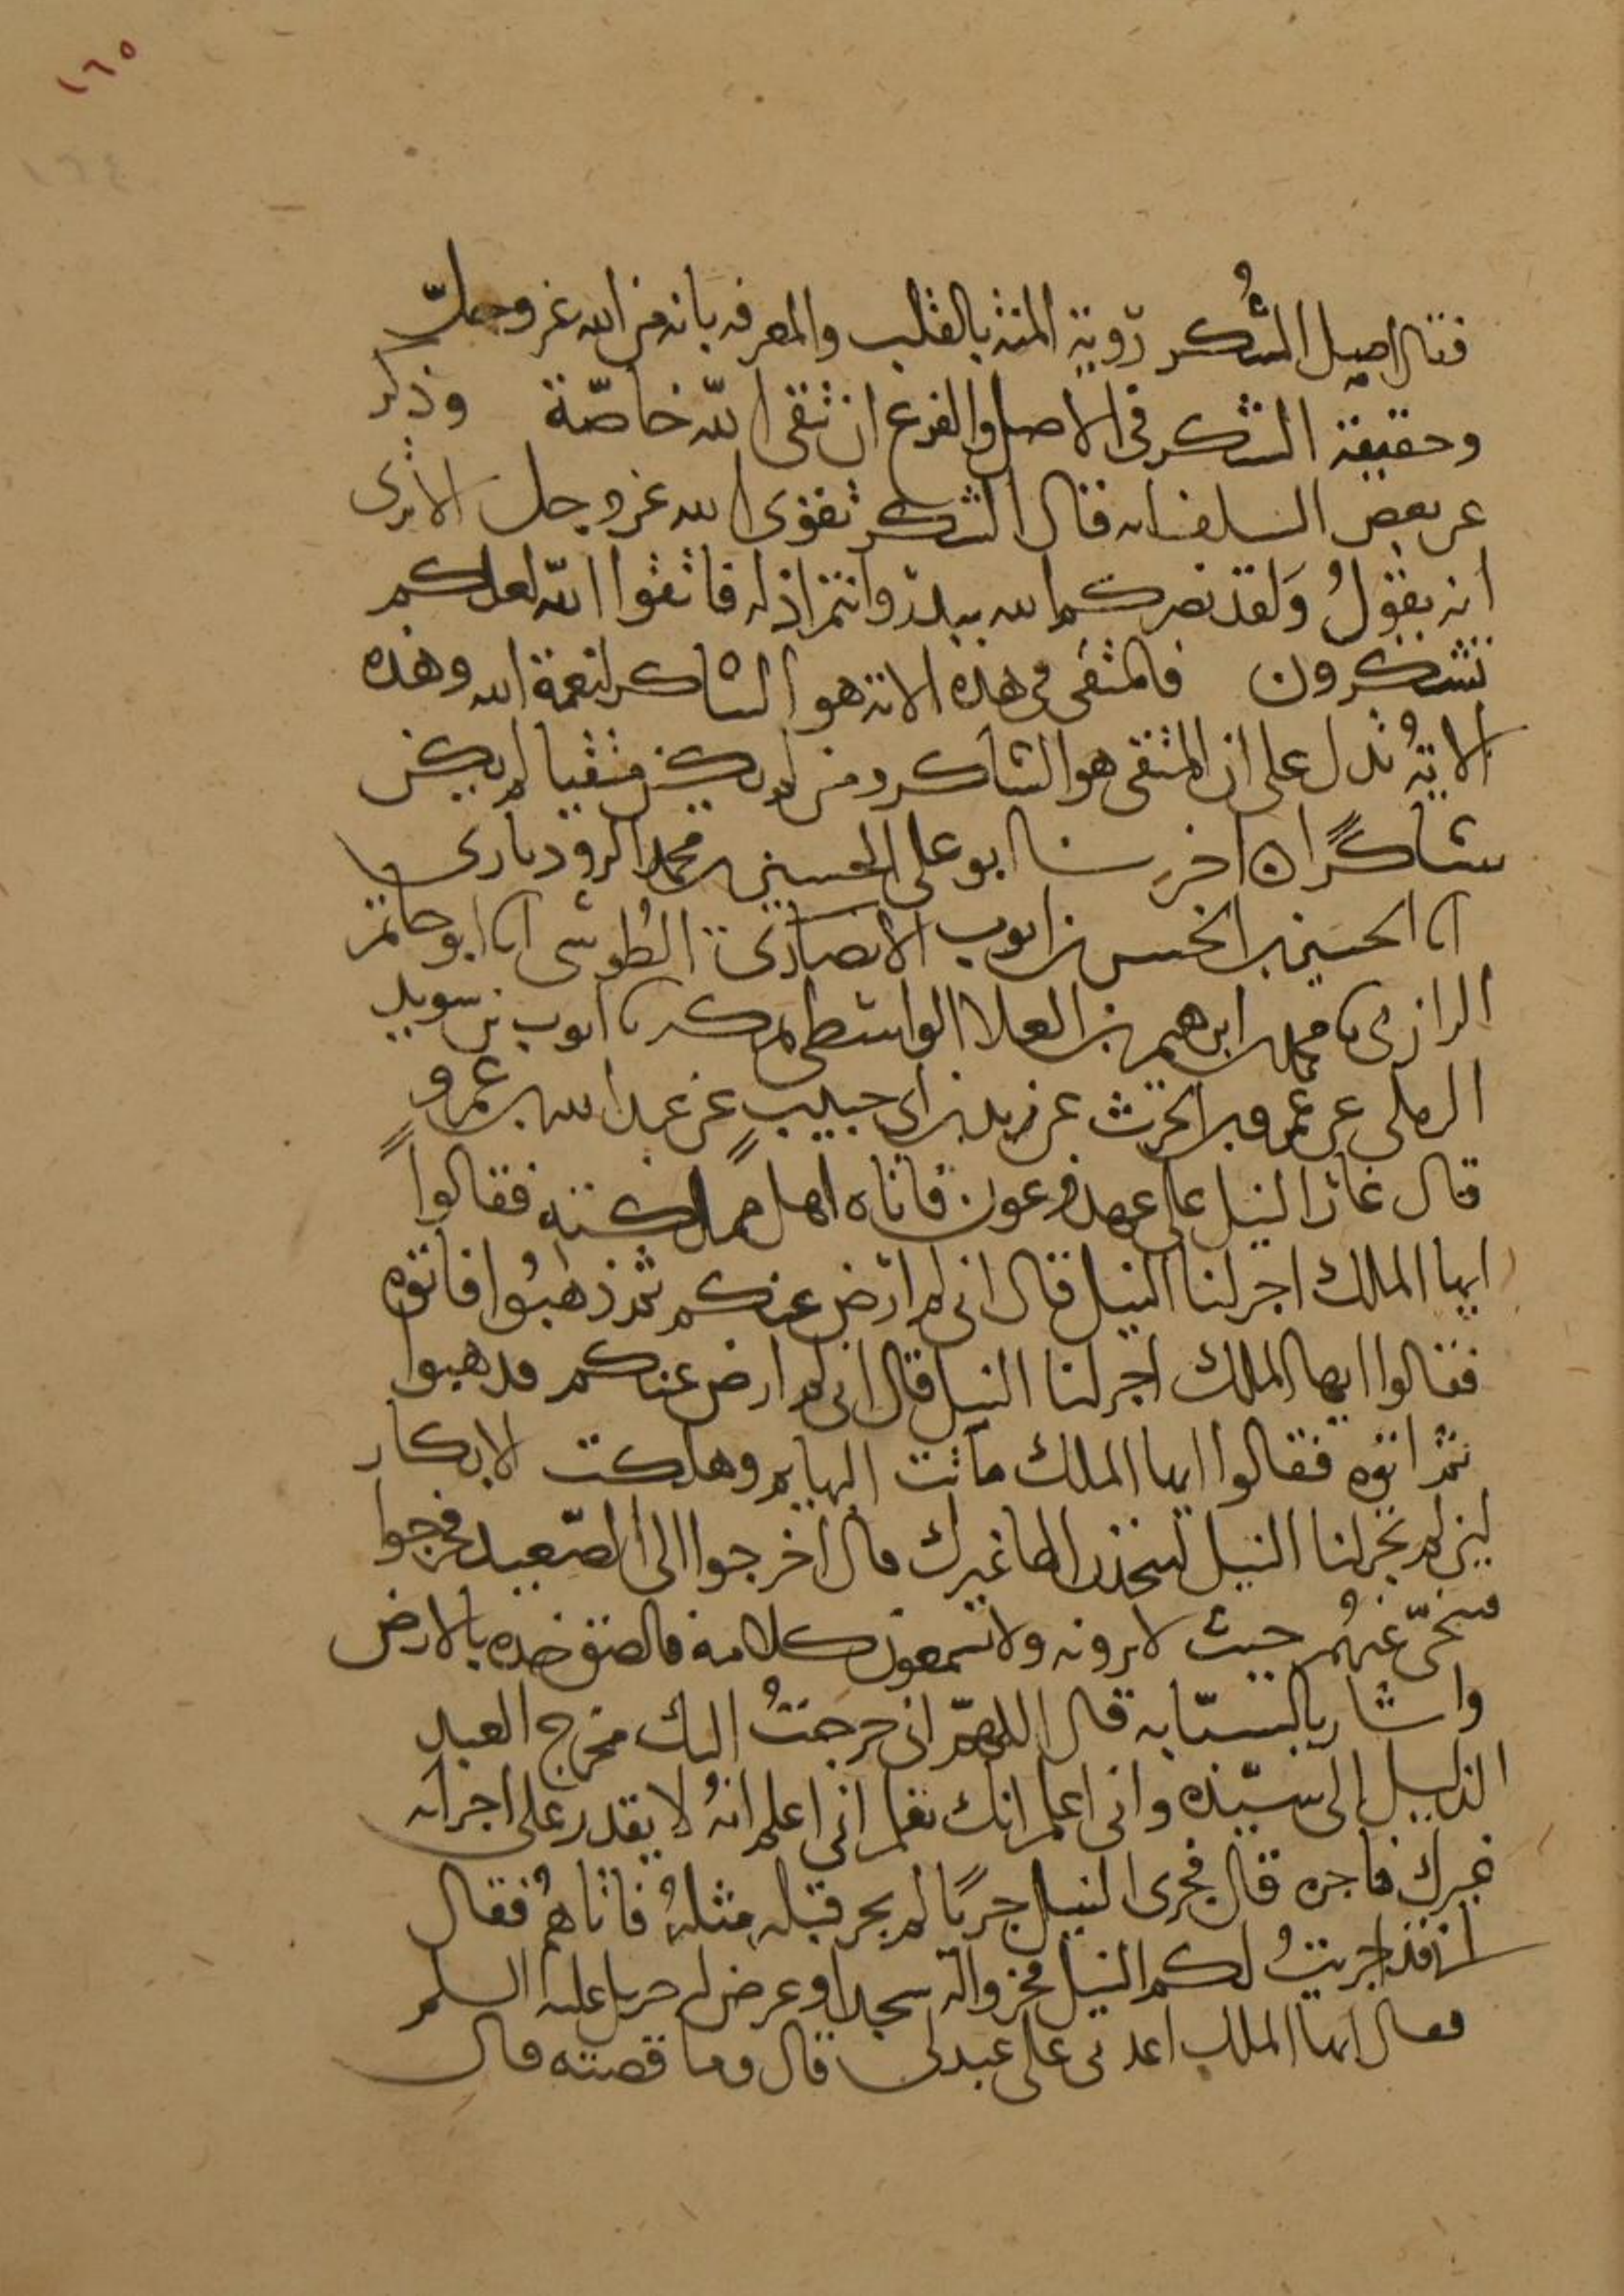 ١٦٥
١٦٤
فقال اصل الشُكر رؤية المنة بالقلب والمعرفه بانه من الله عز وجلّ
وحقيقة الشكر في الاصل والفرع ان تتقى اللّه خاصّة وذكر
عن بعض السلف انه قال الشكر تقوى الله عز وجل الا ترى
انه يقولُ وَلقد نصركم الله ببدر وانتم اذله فاتقوا اللّه لعلكم
تشكرون فالمتقى فى هذه الاية هو الشاكر لنعمة الله وهذه
الايةُ تدل على ان المتقى هو الشاكر ومن لم يكن متقيا لم يكن
شاكرًا ه اخبرنا ابو على الحسين بن محمد الروذبارى
انا الحسين بن الحسن بن ايوب الانصارى الطُوسى انا ابو حاتم
الرازى نا محمد بن ابرهيم بن العلا الواسطى بمكه نا ايوب بن سويد
الرملى عن عمرو بن الحرث عن يزيد بن ابى حبيب عن عبد الله بن عمرو
قال غار النيل على عهد فرعون فاتاه اهل مملكته فقالوا
ايها الملك اجر لنا النيل قال انى لم ارض عنكم ثم ذهبُوا فاتوه
فقالوا ايها الملك اجر لنا النيل قال انى لم ارض عنكم فذهبوا
ثم اتوه فقالوا ايها الملك ماتت البهايم وهلكت الابكار
لين لم تجر لنا النيل لنتخذن الها غيرك قال اخرجوا الى الصّعيد فخرجوا
فتنحّى عنهُم حيث لا يرونه ولا يسمعون كلامه فالصق خده بالارض
واشار بالسبّابه قال اللهمّ انى خرجتُ اليك مخرج العبد
الذليل الى سيّده وانى اعلم انك تعلم انى اعلم انهُ لا يقدر على اجرائه
غيرك فاجره قال فجرى النيل جريًا لم يجر قبله مثلهُ فاتاهمُ فقال
انى قد اجريتُ لكم النيل فخروا له سجدا وعرض له جبريل عليه السلم
فقال ايها الملك اعدنى على عبد لى قال وما قصته قال